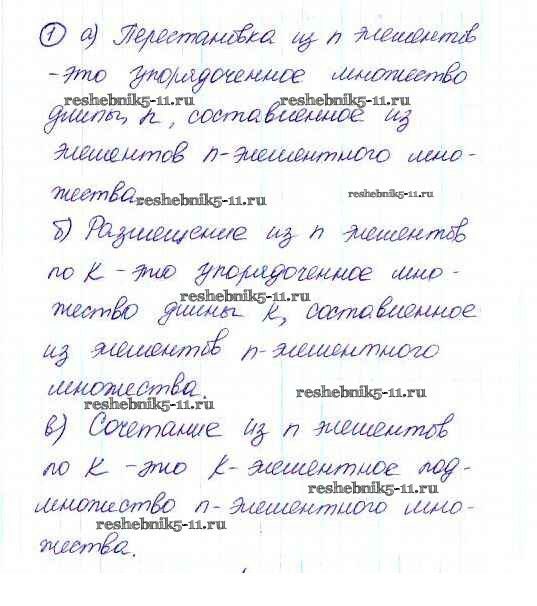 ① а) Перестановка из n элементов
- это упорядоченное множество
reshebnik5-11.ru reshebnik5-11.ru
длины n, составленное из
элементов n-элементного мно-
жества.
reshebnik5-11.ru reshebnik5-11.ru
б) Размещение из n элементов
по k - это упорядоченное мно-
reshebnik5-11.ru
жество длины k, составленное
из элементов n-элементного
множества.
reshebnik5-11.ru reshebnik5-11.ru
в) Сочетание из n элементов
по k - это k-элементное под-
reshebnik5-11.ru
множество n-элементного мно-
reshebnik5-11.ru
жества.